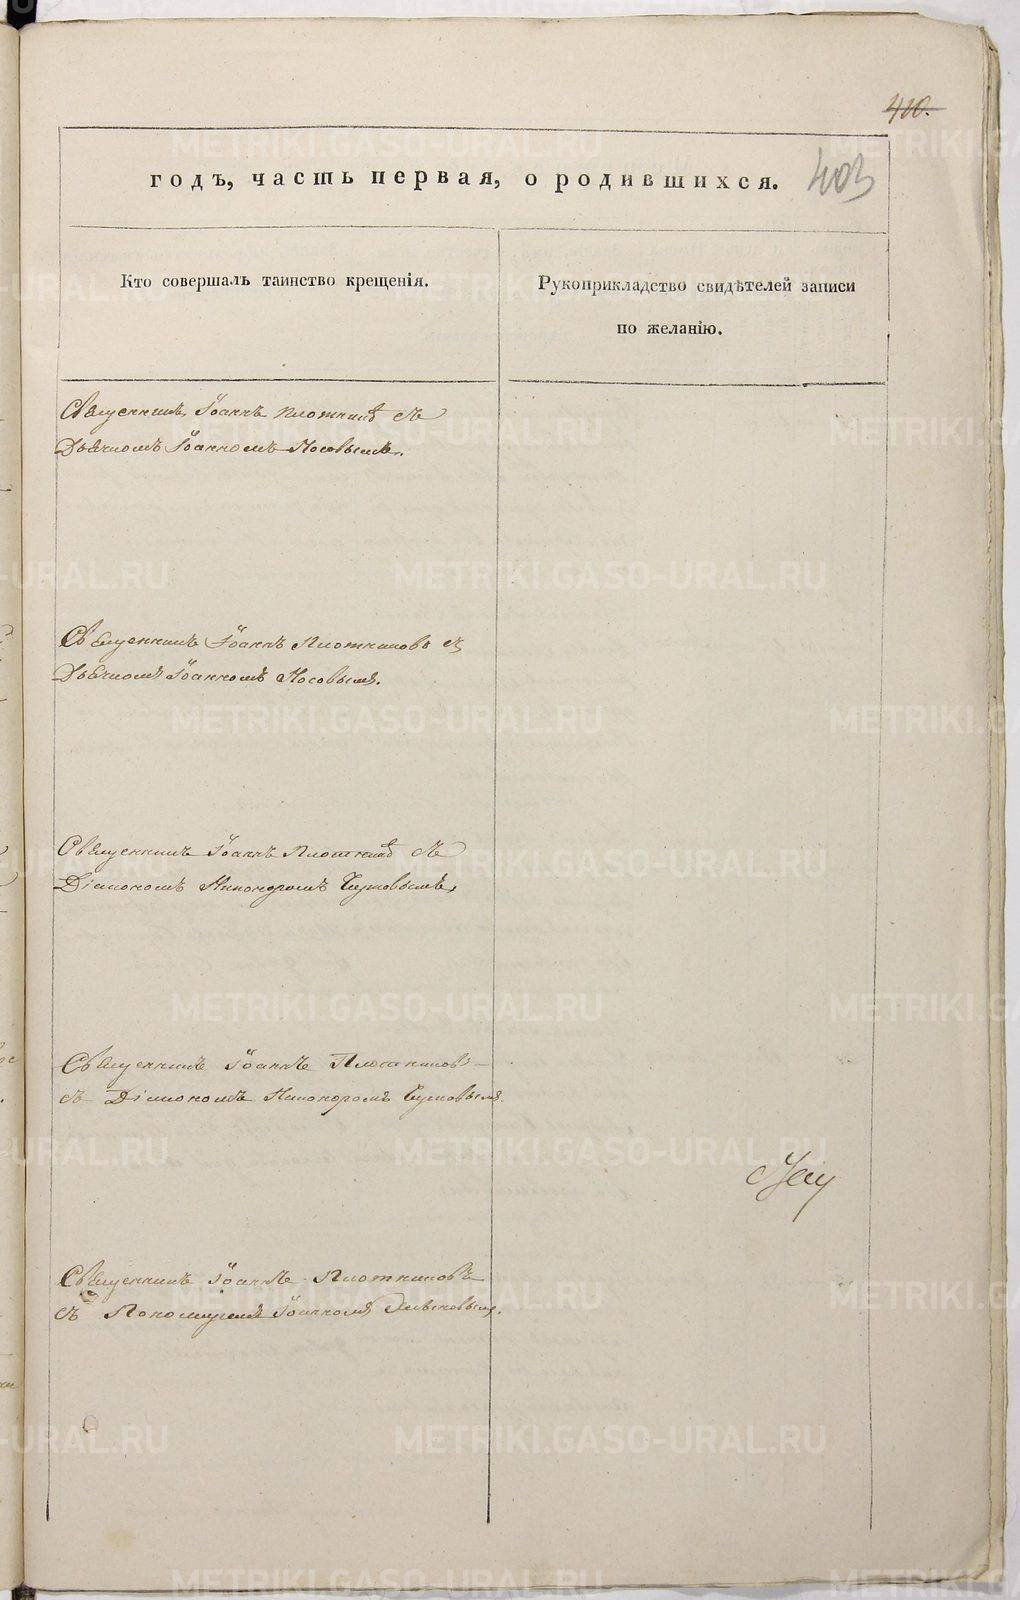 410.
403
годъ, часть первая, о родившихся.
Кто совершалъ таинство крещенія.
Рукоприкладство свидѣтелей записи
по желанію.
Священникъ Іоаннъ Плотниковъ съ
Дьячкомъ Іоанномъ Носовымъ.
Священникъ Іоаннъ Плотниковъ съ
Дьячкомъ Іоанномъ Носовымъ.
Священникъ Іоаннъ Плотниковъ съ
Діакономъ Никаноромъ
Священникъ Іоаннъ Плотниковъ
съ Діакономъ Никаноромъ
Священникъ Іоаннъ Плотниковъ
съ Пономаремъ Іоанномъ
METRIKI.GASO-URAL.RU